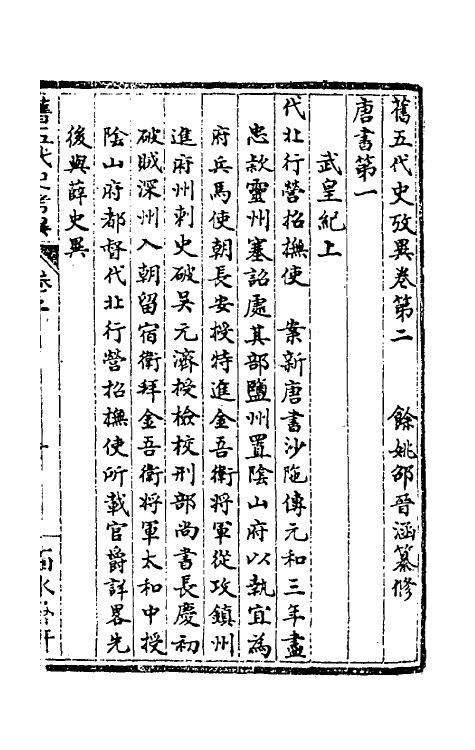 舊五代史攷異卷第二　　餘姚邵晉涵纂修
唐書第一
武皇紀上
代北行營招撫使　案新唐書沙陁傳元和三年盡
忠款靈州塞詔處其部鹽州置陰山府以執宜為
府兵馬使朝長安授特進金吾衛將軍從攻鎮州
進府州刺史破吳元濟授檢校刑部尚書長慶初
破賊深州入朝留宿衛拜金吾衛將軍太和中授
陰山府都督代北行營招撫使所載官爵詳畧先
後與薛史異
舊五代史考異　卷二